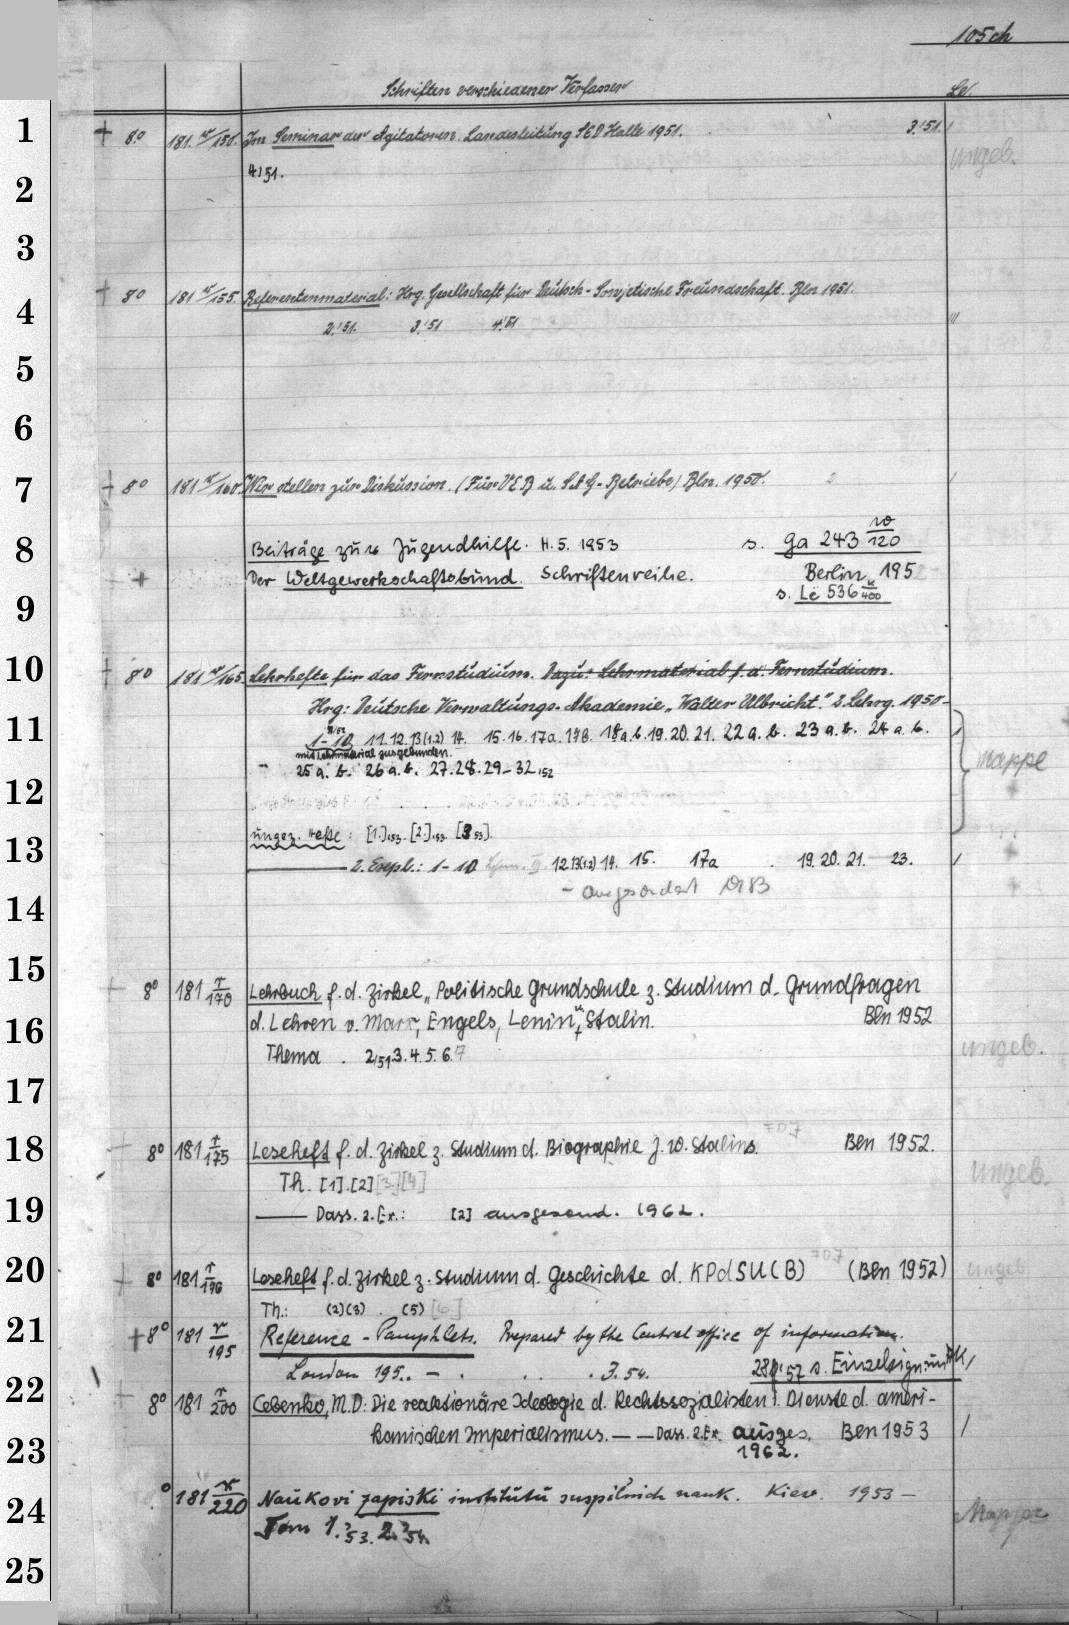 105 ch
Schriften verschiedener Verfasser
Le.
1
+ 8° 181 r/150. Im Seminar der Agitatoren. Landesleitung SED Halle 1951. 3.'51.
ungeb.
4/51.
2
3
+ 8° 181 r/155. Referentenmaterial: Hrg. Gesellschaft für Deutsch-Sowjetische Freundschaft. Bln 1951.
4
2.'51. 3.'51 4.'51
5
6
7
+ 8° 181 r/160. Wir stellen zur Diskussion. (Für VEB u. SAG-Betriebe) Bln. 1950.
8
Beiträge zur Jugendhilfe. H. 5. 1953 s. Ga 243 w/120
+ Der Weltgewerkschaftsbund. Schriftenreihe. Berlin 195
9
s. Le 536 k/400
10
+ 8° 181 r/165. Lehrhefte für das Fernstudium. Dazu: Lehrmaterial f. d. Fernstudium.
Hrg: Deutsche Verwaltungs-Akademie „Walter Ulbricht." 3. Lehrg. 1950-
11
1-10 11. 12. 13(1.2) 14. 15. 16. 17a. 17B. 18a.b. 19. 20. 21. 22 a. b. 23 a. b. 24 a. b.
mit Lehrmaterial ausgebunden.
Mappe
25 a. b. 26 a. b. 27. 28. 29-32,152
12
ungez. Hefte: [1.],53. [2.],53. [3,53].
13
2. Expl.: 1-10 12. 13(1.2) 14. 15. 17a 19. 20. 21. 23.
- ausgesondert
14
15
+ 8° 181 r/170 Lehrbuch f. d. Zirkel „Politische Grundschule z. Studium d. Grundfragen
16
d. Lehren v. Marx, Engels, Lenin, Stalin. Bln 1952
ungeb.
Thema . 2,51 3. 4. 5. 6. 7
17
18
+ 8° 181 r/175 Leseheft f. d. Zirkel z. Studium d. Biographie J. W. Stalins. Bln 1952.
ungeb.
Th. [1]. [2] [3] [4]
19
Dass. 2. Ex.: [2] ausgesond. 1962.
20
+ 8° 181 r/190 Leseheft f. d. Zirkel z. Studium d. Geschichte d. KPdSU(B) (Bln 1952)
ungeb
Th.: (2) (3) . (5) [6]
21
+ 8° 181 r/195 Reference-Pamphlets. Prepared by the Central office of information.
London 195.. - . . . . 3. 54.
s. Einzelsign. im AK
22
8° 181 r/200 Cebenko, M.D.: Die reaktionäre Ideologie d. Rechtssozialisten i. Dienste d. ameri-
kanischen Imperialismus. — — Dass. 2. Ex. ausges. Bln 1953
23
1962.
24
° 181 r/220 Naukovi zapiski institutu suspil'nich nauk. Kiev. 1953 —
Mappe
Tom 1.'53. 2.'54.
25